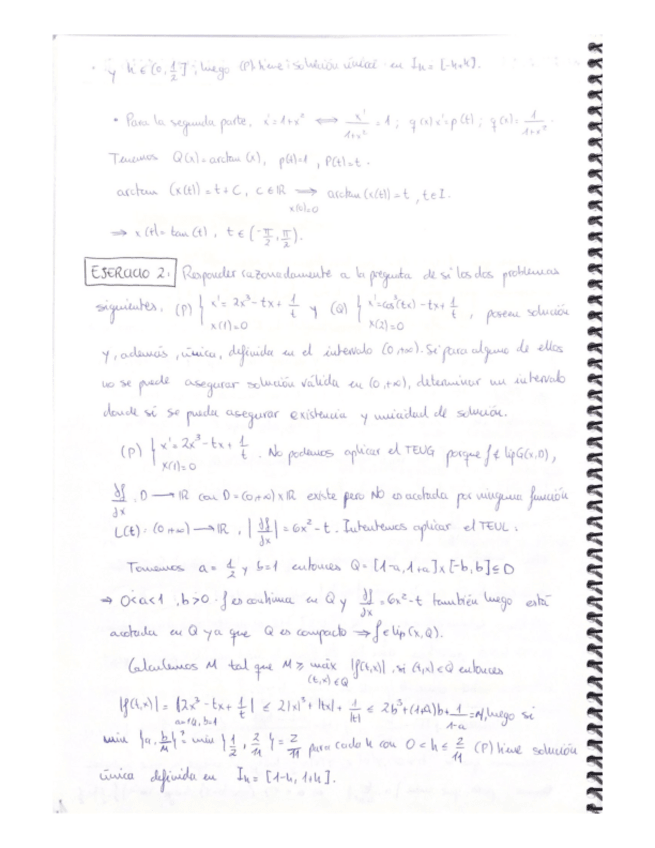 y h ∈ (0, 1/2], luego (P) tiene solución única en Ih = [-h,h].
• Para la segunda parte, x' = 1+x² ⟺ x'/(1+x²) = 1; q(x)x' = p(t); q(x) = 1/(1+x²).
Tenemos Q(x) = arctan(x), p(t)=1, P(t)=t.
arctan(x(t)) = t + C, C ∈ ℝ ⟹ arctan(x(t)) = t, t ∈ I.
x(0)=0
⟹ x(t) = tan(t), t ∈ (-π/2, π/2).
EJERCICIO 2. Responder razonadamente a la pregunta de si los dos problemas
siguientes, (P) { x' = 2x³ - tx + 1/t y (Q) { x' = cos³(tx) - tx + 1/t, poseen solución
x(1)=0 x(2)=0
y, además, única, definida en el intervalo (0,+∞). Si para alguno de ellos
no se puede asegurar solución válida en (0,+∞), determinar un intervalo
donde si se pueda asegurar existencia y unicidad de solución.
(P) { x' = 2x³ - tx + 1/t. No podemos aplicar el TEUG porque f ∉ LipG(x,D),
x(1)=0
∂f/∂x, D → ℝ con D = (0,+∞) x ℝ existe pero NO es acotada por ninguna función
L(t) = (0,+∞) → ℝ, |∂f/∂x| = 6x² - t. Intentemos aplicar el TEUL:
Tomemos a = 1/2 y b=1 entonces Q = [1-a, 1+a] x [-b,b] ⊆ D
⇒ 0<a<1, b>0. f es continua en Q y ∂f/∂x = 6x² - t también luego está
acotada en Q ya que Q es compacto ⇒ f ∈ Lip(x,Q).
Calculemos M tal que M ≥ máx |f(t,x)|, si (t,x) ∈ Q entonces
(t,x) ∈ Q
|f(t,x)| = |2x³ - tx + 1/t| ≤ 2|x|³ + |tx| + 1/|t| ≤ 2b³ + (1+a)b + 1/(1-a) = M, luego si
a=1/2, b=1
min {a, b/M} = min {1/2, 2/11} = 2/11 para cada h con 0 < h ≤ 2/11 (P) tiene solución
única definida en Ih = [1-h, 1+h].